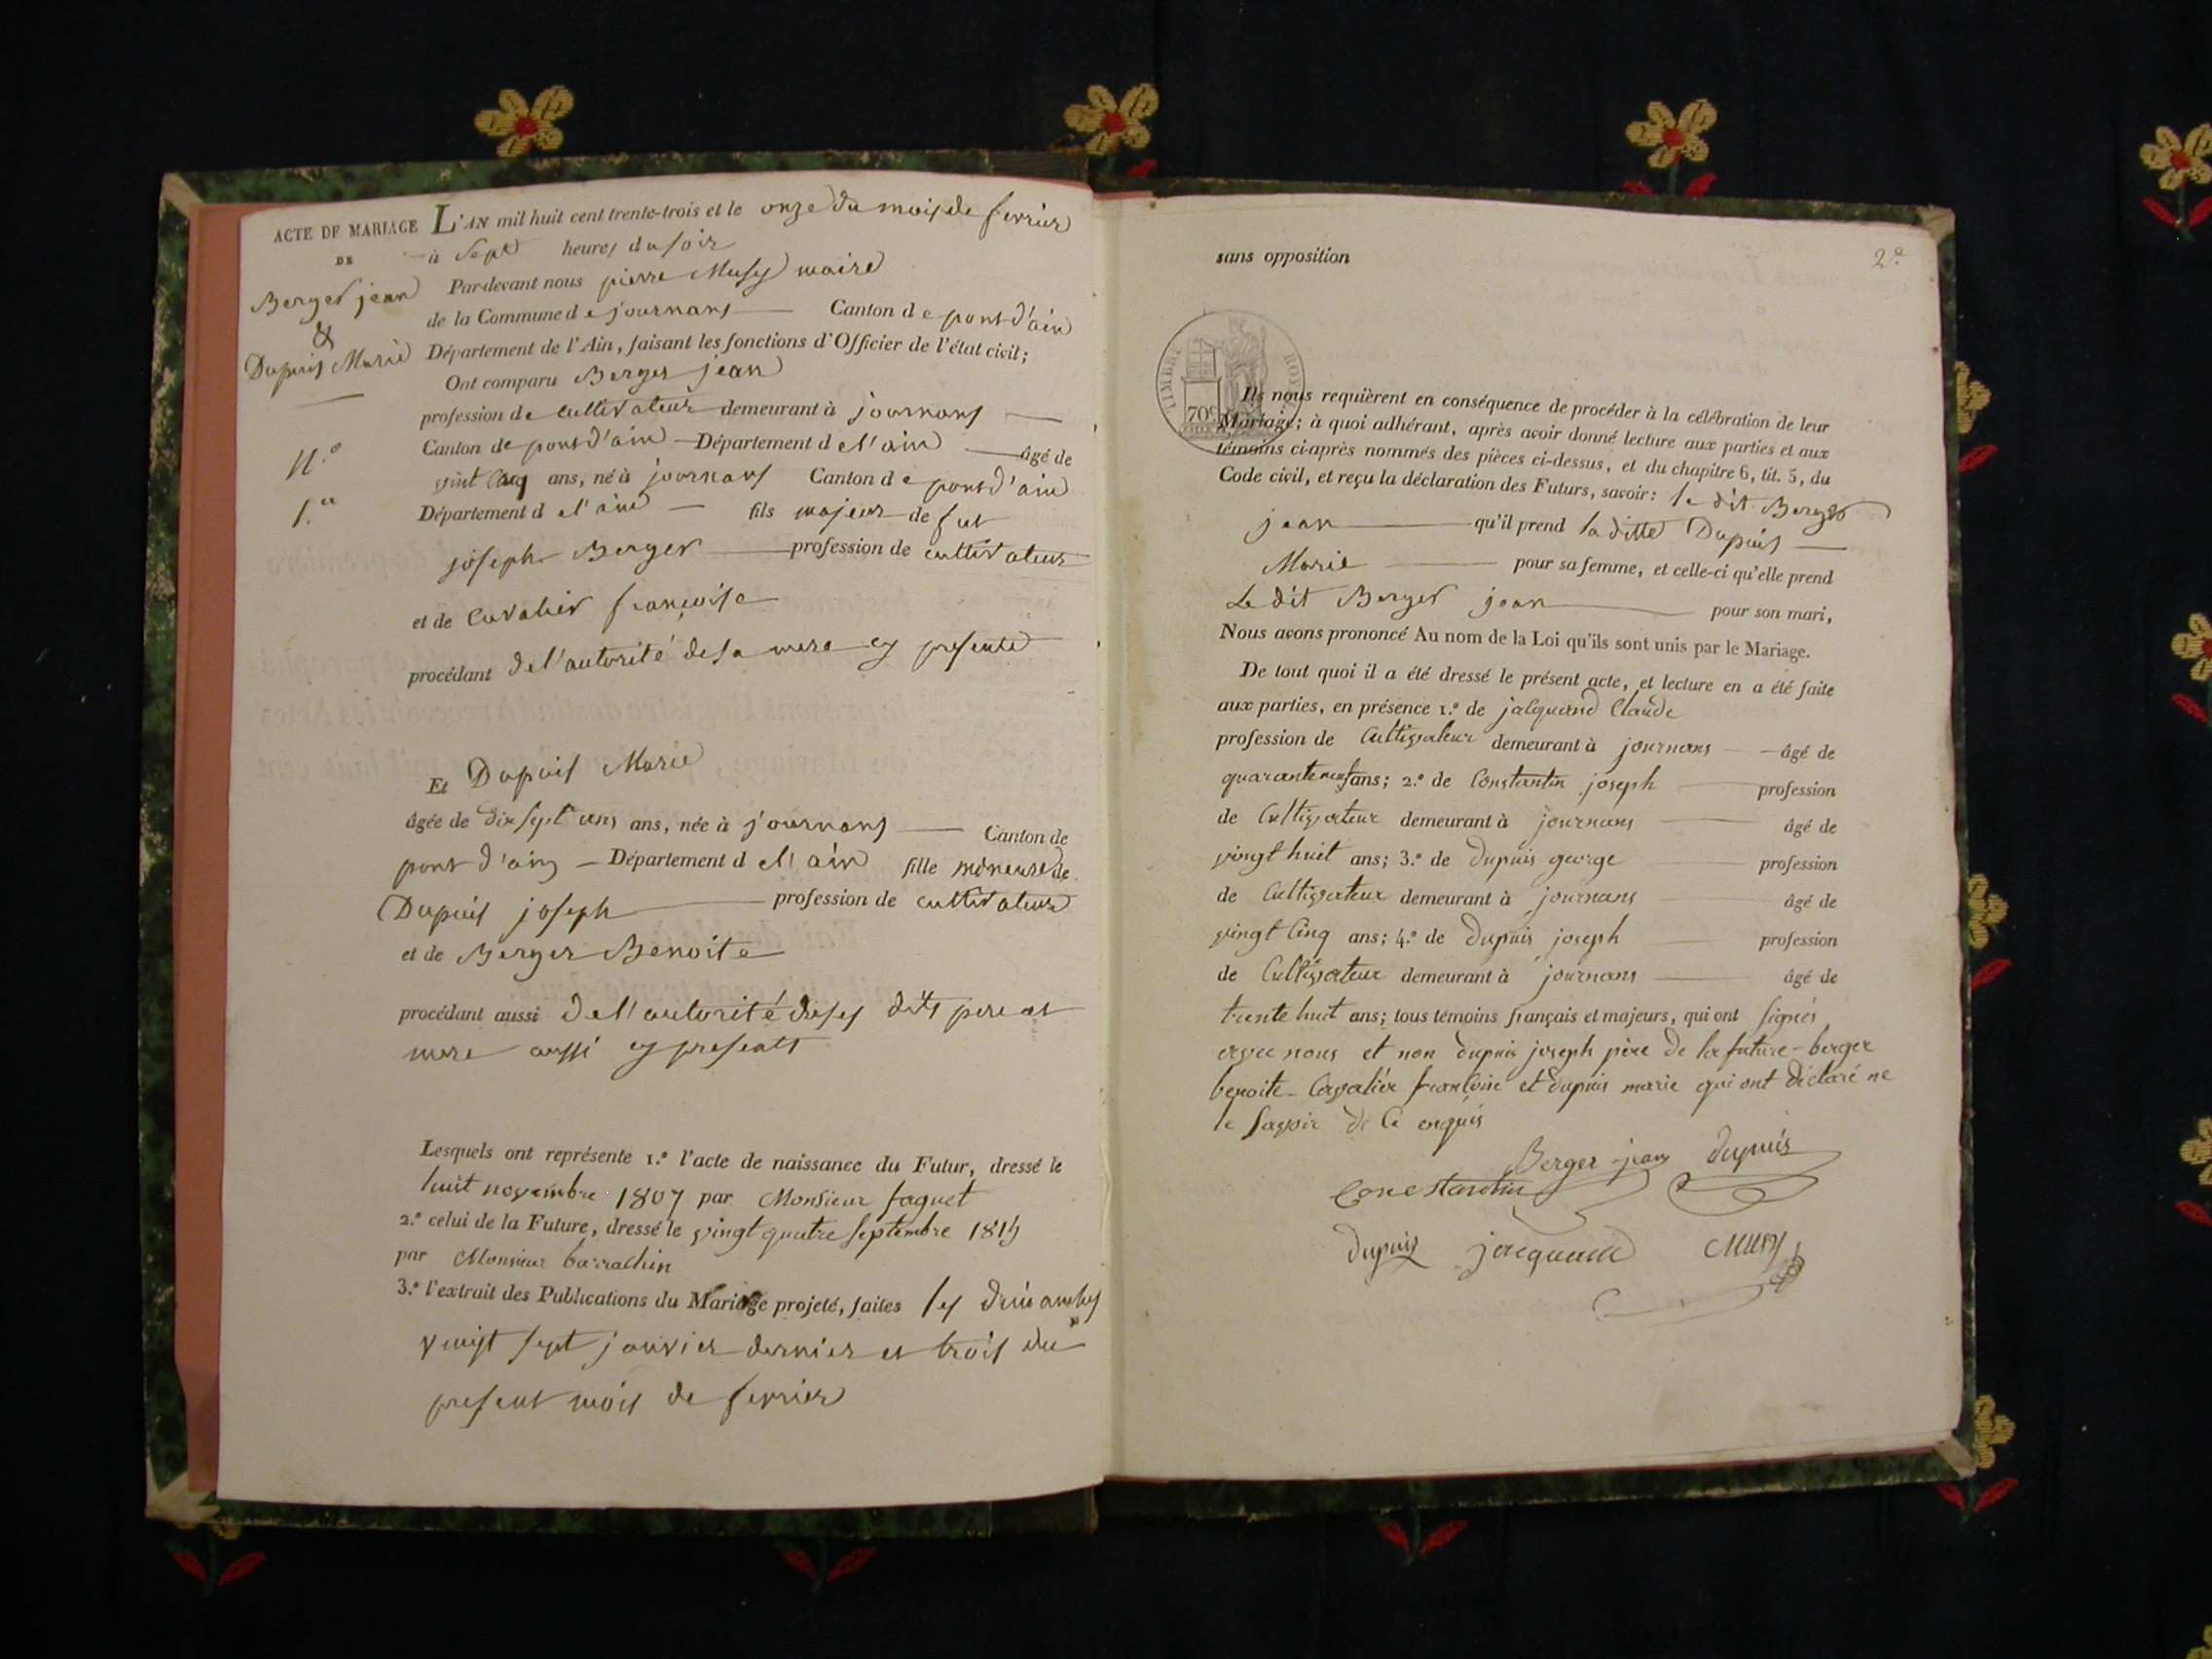 ACTE DE MARIAGE
DE
Berger jean
&
Dupuis Marie
N.o
1.er
L'AN mil huit cent trente-trois et le onze du mois de fevrier
à Sept heures du soir
Par-devant nous pierre Musy maire
de la Commune de journans Canton de pont d'ain
Département de l'Ain, faisant les fonctions d'Officier de l'état civil;
Ont comparu Berger jean
profession de cultivateur demeurant à journans
Canton de pont d'ain Département de l'ain âgé de
vint cinq ans, né à journans Canton de pont d'ain
Département de l'ain fils majeur de fut
joseph Berger profession de cultivateur
et de Cavalier françoise
procédant de l'autorité de sa mere cy presente
Et Dupuis Marie
âgée de dix sept ans ans, née à journans Canton de
pont d'ain Département de l'ain fille mineure de
Dupuis joseph profession de cultivateur
et de Berger Benoite
procédant aussi de l'autorité de ses dits pere et
mere aussi cy presents
Lesquels ont représenté 1.o l'acte de naissance du Futur, dressé le
huit novembre 1807 par Monsieur faguet
2.o celui de la Future, dressé le vingt quatre septembre 1815
par Monsieur barrachin
3.o l'extrait des Publications du Mariage projeté, faites les dimanches
vingt sept janvier dernier et trois du
present mois de fevrier
2.e
sans opposition
TIMBRE ROYAL
70c
Ils nous requièrent en conséquence de procéder à la célébration de leur
Mariage; à quoi adhérant, après avoir donné lecture aux parties et aux
témoins ci-après nommés des pièces ci-dessus, et du chapitre 6, tit. 5, du
Code civil, et reçu la déclaration des Futurs, savoir: le dit Berger
jean qu'il prend la ditte Dupuis
Marie pour sa femme, et celle-ci qu'elle prend
Le dit Berger jean pour son mari,
Nous avons prononcé Au nom de la Loi qu'ils sont unis par le Mariage.
De tout quoi il a été dressé le présent acte, et lecture en a été faite
aux parties, en présence 1.o de jacquand Claude
profession de Cultivateur demeurant à journans âgé de
quarante neuf ans; 2.o de Constantin joseph profession
de Cultivateur demeurant à journans âgé de
vingt huit ans; 3.o de Dupuis george profession
de Cultivateur demeurant à journans âgé de
vingt Cinq ans; 4.o de Dupuis joseph profession
de Cultivateur demeurant à journans âgé de
trente huit ans; tous témoins français et majeurs, qui ont signés
avec nous et non dupuis joseph père de la future - berger
benoite - Cavalier françoise et dupuis marie qui ont déclaré ne
le savoir de ce enquis
Berger jean dupuis
Conestantin
dupuis jacquand MUSY